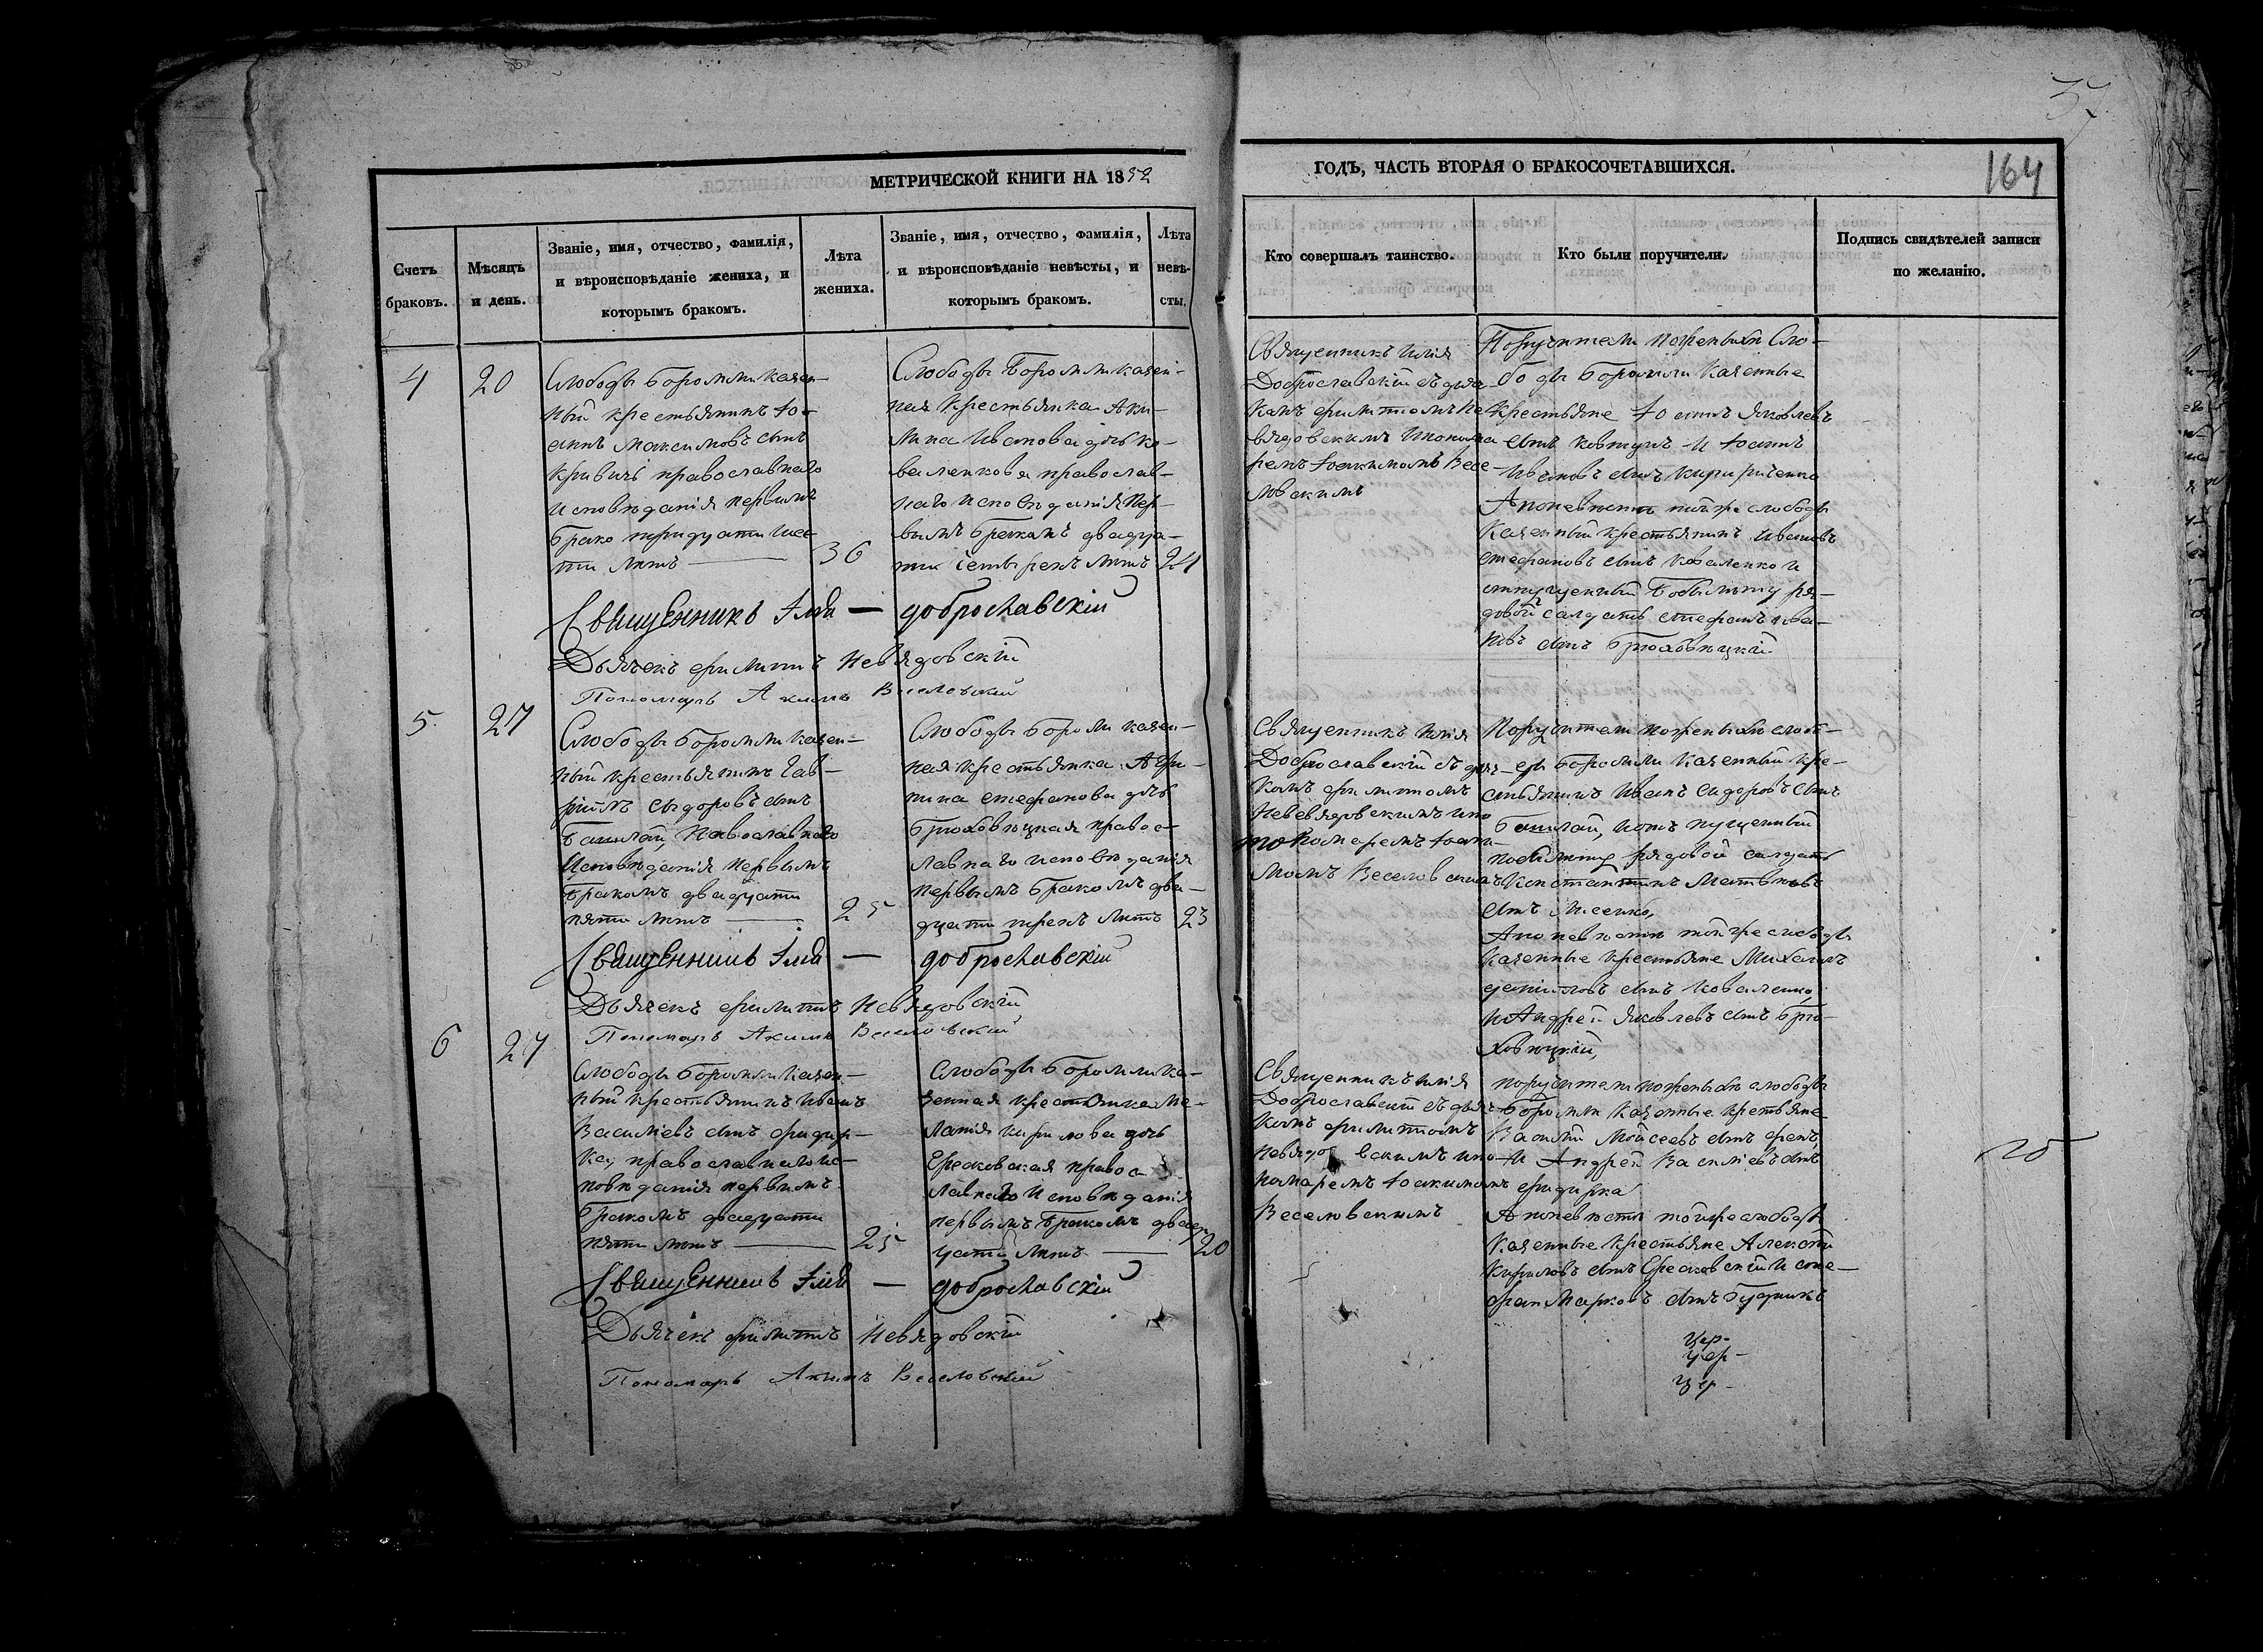 37
МЕТРИЧЕСКОЙ КНИГИ НА 1852
ГОДЪ, ЧАСТЬ ВТОРАЯ О БРАКОСОЧЕТАВШИХСЯ.
164
Счетъ
браковъ.
Мѣсяцъ
и день.
Званіе, имя, отчество, фамилія,
и вѣроисповѣданіе жениха, и
которымъ бракомъ.
Лѣта
жениха.
Званіе, имя, отчество, фамилія,
и вѣроисповѣданіе невѣсты, и
которымъ бракомъ.
Лѣта
невѣ-
сты.
Кто совершалъ таинство.
Кто были поручители.
Подпись свидѣтелей записи
по желанію.
4
20
Слободы Боромли казен-
ный крестьянинъ Іо-
аннъ Максимовъ сынъ
Кривичь православнаго
исповѣданія первымъ
брако тридцати шес
ти лѣтъ
36
Слободы Боромли казен-
ная крестьянка Аки-
лина Иванова дочь Ко-
валенкова православ-
наго исповѣданія пер-
вымъ бракомъ двадца-
ти четырехъ лѣтъ
24
Священникъ Илія
Доброславскій съ дья-
комъ Филиппомъ Не
вядовскимъ и понома
ремъ Іоакимомъ Весе-
ловскимъ
Поручители по женихѣ Сло-
боды Боромли казенные
крестьяне Іоаннъ Яковлевъ
сынъ Ковтунъ и Іоаннъ
Ивановъ сынъ Кириченко
А по невѣстѣ той же слободы
казенный крестьянинъ Ивановъ
Стефановъ сынъ Коваленко и
отпущенный по билету ря-
довой салдатъ Стефанъ Ива-
новъ сынъ Брюховецкій
Священникъ Илія — Доброславскій
Дьячекъ Филиппъ Невядовскій
Пономарь Акимъ Веселовскій
5
27
Слободы Боромли казен-
ный крестьянинъ Гав-
ріилъ Сидоровъ сынъ
православнаго
исповѣданія первымъ
бракомъ двадцати
пяти лѣтъ
25
Слободы Боромли казен-
ная крестьянка Агри-
пина Стефанова дочь
Брюховецкая правос-
лавнаго исповѣданія
первымъ бракомъ два-
дцати трехъ лѣтъ
23
Священникъ Илія
Доброславскій съ дья-
комъ Филипомъ
и по
номаремъ Іоаки-
момъ Веселовскимъ
Поручители по женихѣ слоб-
оды Боромли казенный кре-
стьянинъ Иванъ Сидоровъ сынъ
и отпущенный
по билету рядовой салдатъ
Константинъ Матвѣевъ
сынъ Лисенко,
А по невѣстѣ той же слободы
казенные крестьяне Михаилъ
Даниловъ сынъ Коваленко,
и Андрей Яковлевъ сынъ Брю-
ховецкій,
Священникъ Илія — Доброславскій
Дьячекъ Филиппъ Невядовскій
Пономарь Акимъ Веселовскій
6
27
Слободы Боромли казен-
ный крестьянинъ Иванъ
Васильевъ сынъ Фидир-
ка, православнаго ис-
повѣданія первымъ
бракомъ двадцати
пяти лѣтъ
25
Слободы Боромли ка-
зенная крестьянка Ме-
ланія Кирилова дочь
православ-
лавнаго исповѣданія
первымъ бракомъ двад
цати лѣтъ
20
Священникъ Илія
Доброславскій съ дья-
комъ Филиппомъ
Невядовскимъ и по-
номаремъ Іоакимомъ
Веселовскимъ
поручители по женихѣ слободы
Боромли казенные крестьяне
Василій Мойсеевъ сынъ
и Андрей Васильевъ сынъ
Фидирка
А по невѣстѣ той же слободы
казенные крестьяне Алексѣй
Кириловъ сынъ и Сте-
фан Марковъ сынъ Будникъ
Священникъ Илія — Доброславскій
Дьячекъ Филиппъ Невядовскій
Пономарь Акимъ Веселовскій